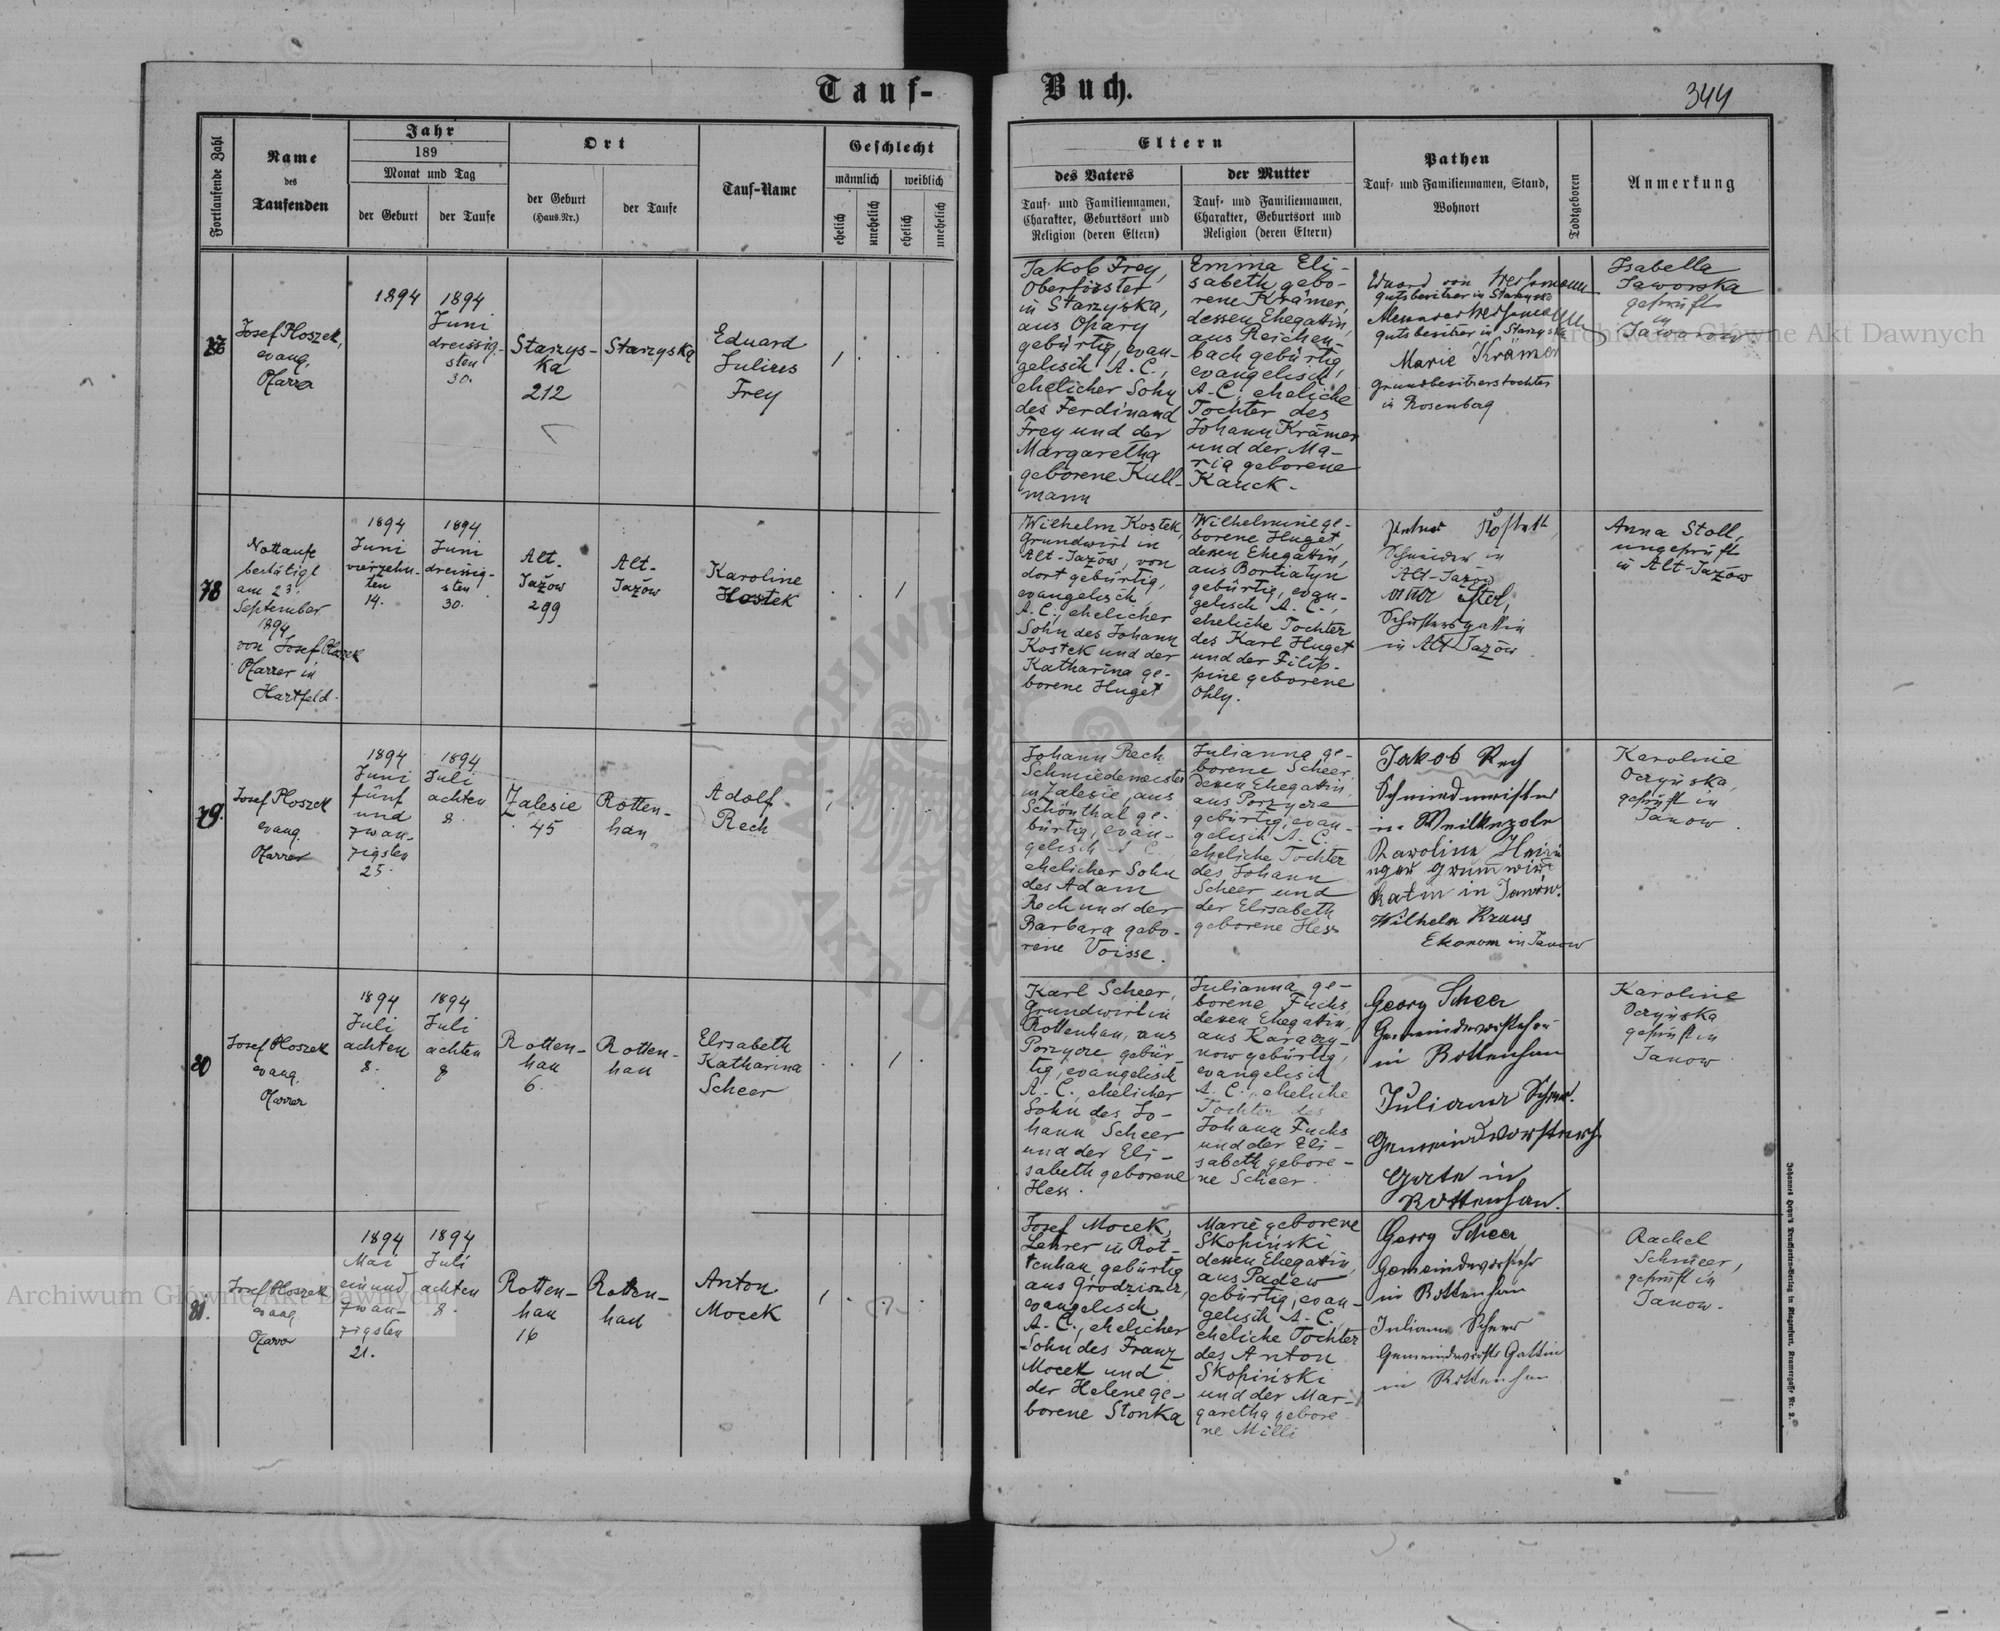 Tauf-
Buch.
344
Fortlaufende Zahl
Name
des
Taufenden
Jahr
189
Monat und Tag
der Geburt
der Taufe
Ort
der Geburt
(Haus-Nr.)
der Taufe
Tauf-Name
Geschlecht
männlich
weiblich
ehelich
unehelich
ehelich
unehelich
Eltern
des Vaters
Tauf- und Familiennamen,
Charakter, Geburtsort und
Religion (deren Eltern)
der Mutter
Tauf- und Familiennamen,
Charakter, Geburtsort und
Religion (deren Eltern)
Pathen
Tauf- und Familiennamen, Stand,
Wohnort
Todtgeboren
Anmerkung
Josef Ploszek,
evang.
Pfarrer
1894
1894
Juni
dreissig-
sten
30.
Starzys-
ka
212
Starzyska
Eduard
Julius
Frey
Jakob Frey,
Oberförster
in Starzyska,
aus Opary
gebürtig, evan-
gelisch A. C.,
ehelicher Sohn
des Ferdinand
Frey und der
Margaretha
geborene Kull-
mann
Emma Eli-
sabeth gebo-
rene Krämer,
dessen Ehegattin,
aus Reichen-
bach gebürtig,
evangelisch
A. C., eheliche
Tochter des
Johann Krämer
und der Ma-
ria geborene
Kauck.
Gutsbesitzer in Starzyska
Gutsbesitzer in Starzyska
Marie Krämer
Grundbesitzerstochter
in Rosenberg
Isabella
Jaworska
geprüft
in
Jaworow
78
Nottaufe
bestätigt
am 23.
September
1894
von Josef Ploszek
Pfarrer in
Hartfeld.
1894
Juni
vierzehn-
ten
14.
1894
Juni
dreissig-
sten
30.
Alt-
Jażow
299
Alt-
Jażow
Karoline
Kostek
Wilhelm Kostek,
Grundwirt in
Alt-Jażow, von
dort gebürtig,
evangelisch
A. C., ehelicher
Sohn des Johann
Kostek und der
Katharina ge-
borene Huget
Wilhelmine ge-
borene Huget,
dessen Ehegattin,
aus Bortiatyn
gebürtig, evan-
gelisch A. C.,
eheliche Tochter
des Karl Huget
und der Filip-
pine geborene
Ohly.
Schneider in
Alt-Jazow
in Alt Jazow
Anna Stoll,
ungeprüft
in Alt-Jażow
79.
Josef Ploszek
evang.
Pfarrer
1894
Juni
fünf
und
zwan-
zigsten
25.
1894
Juli
achten
8.
Zalesie
45
Rotten-
han
Adolf
Rech
Johann Rech
Schmiedemeister
in Zalesie, aus
Schönthal ge-
bürtig, evan-
gelisch A. C.,
ehelicher Sohn
des Adam
Rech und der
Barbara gebo-
rene Voisse.
Julianna ge-
borene Scheer,
dessen Ehegattin,
aus Porzycze
gebürtig, evan-
gelisch A. C.
eheliche Tochter
des Johann
Scheer und
der Elisabeth
geborene Hess
Jakob Rech
Schmiedmeister
in
Karoline
in Janów.
Wilhelm Kraus
Ekonom in Janow
Karoline
Oczyńska,
geprüft in
Janow.
80
Josef Ploszek
evang.
Pfarrer
1894
Juli
achten
8.
1894
Juli
achten
8
Rotten-
han
6.
Rotten-
han
Elisabeth
Katharina
Scheer
Karl Scheer,
Grundwirt in
Rottenhan, aus
Porzycze gebür-
tig, evangelisch
A. C., ehelicher
Sohn des Jo-
hann Scheer
und der Eli-
sabeth geborene
Hess.
Julianna ge-
borene Fuchs,
dessen Ehegattin,
aus Karaczy-
now gebürtig,
evangelisch
A. C., eheliche
Tochter des
Johann Fuchs
und der Eli-
sabeth gebore-
ne Scheer.
Georg Scheer
Gemeindevorsteher
in Rottenhan
Juliana Scheer.
in
Rottenhan.
Karoline
Oczyńska
geprüft in
Janow
81.
Josef Ploszek
evang.
Pfarrer
1894
Mai
einund
zwan-
zigsten
21.
1894
Juli
achten
8.
Rotten-
han
16
Rotten-
han
Anton
Mocek
Josef Mocek,
Lehrer in Rot-
tenhan, gebürtig
aus Grodzisk,
evangelisch
A. C., ehelicher
Sohn des Franz
Mocek und
der Helene ge-
borene Stonka
Marie geborene
Skopiński
dessen Ehegattin,
aus Padew
gebürtig, evan-
gelisch A. C.,
eheliche Tochter
des Anton
Skopiński
und der Mar-
garetha gebore-
ne Milli
Georg Scheer
Gemeindevorsteher
in Rottenhan
Juliana Scheer
Gattin
in Rottenhan
Rachel
Schmeer,
geprüft in
Janow.
Archiwum Główne Akt Dawnych
Archiwum Główne Akt Dawnych